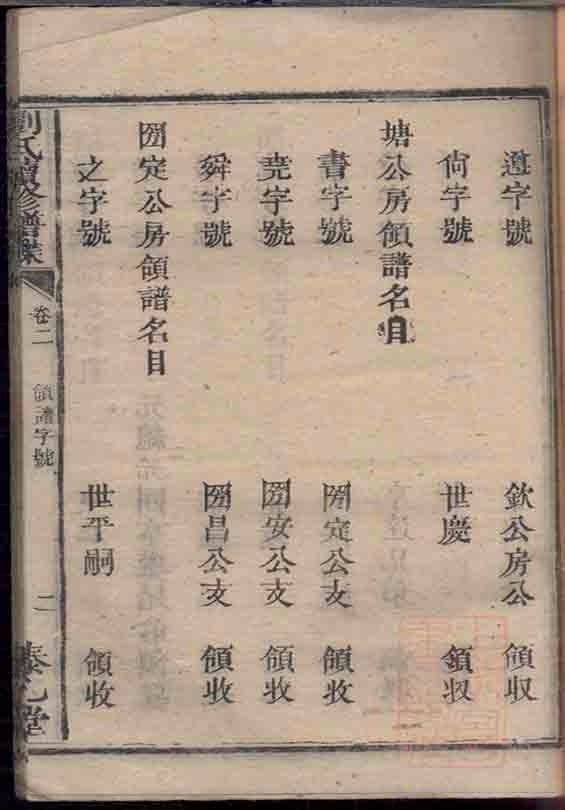 遵字號 欽公房公 領収
尙字號 世慶 領収
塘公房領譜名目
書字號 定公支 領收
堯字號 安公支 領收
舜字號 昌公支 領收
定公房領譜名目
之字號 世平嗣 領收
劉氏續修譜牒
卷二
領譜字號
二
堂